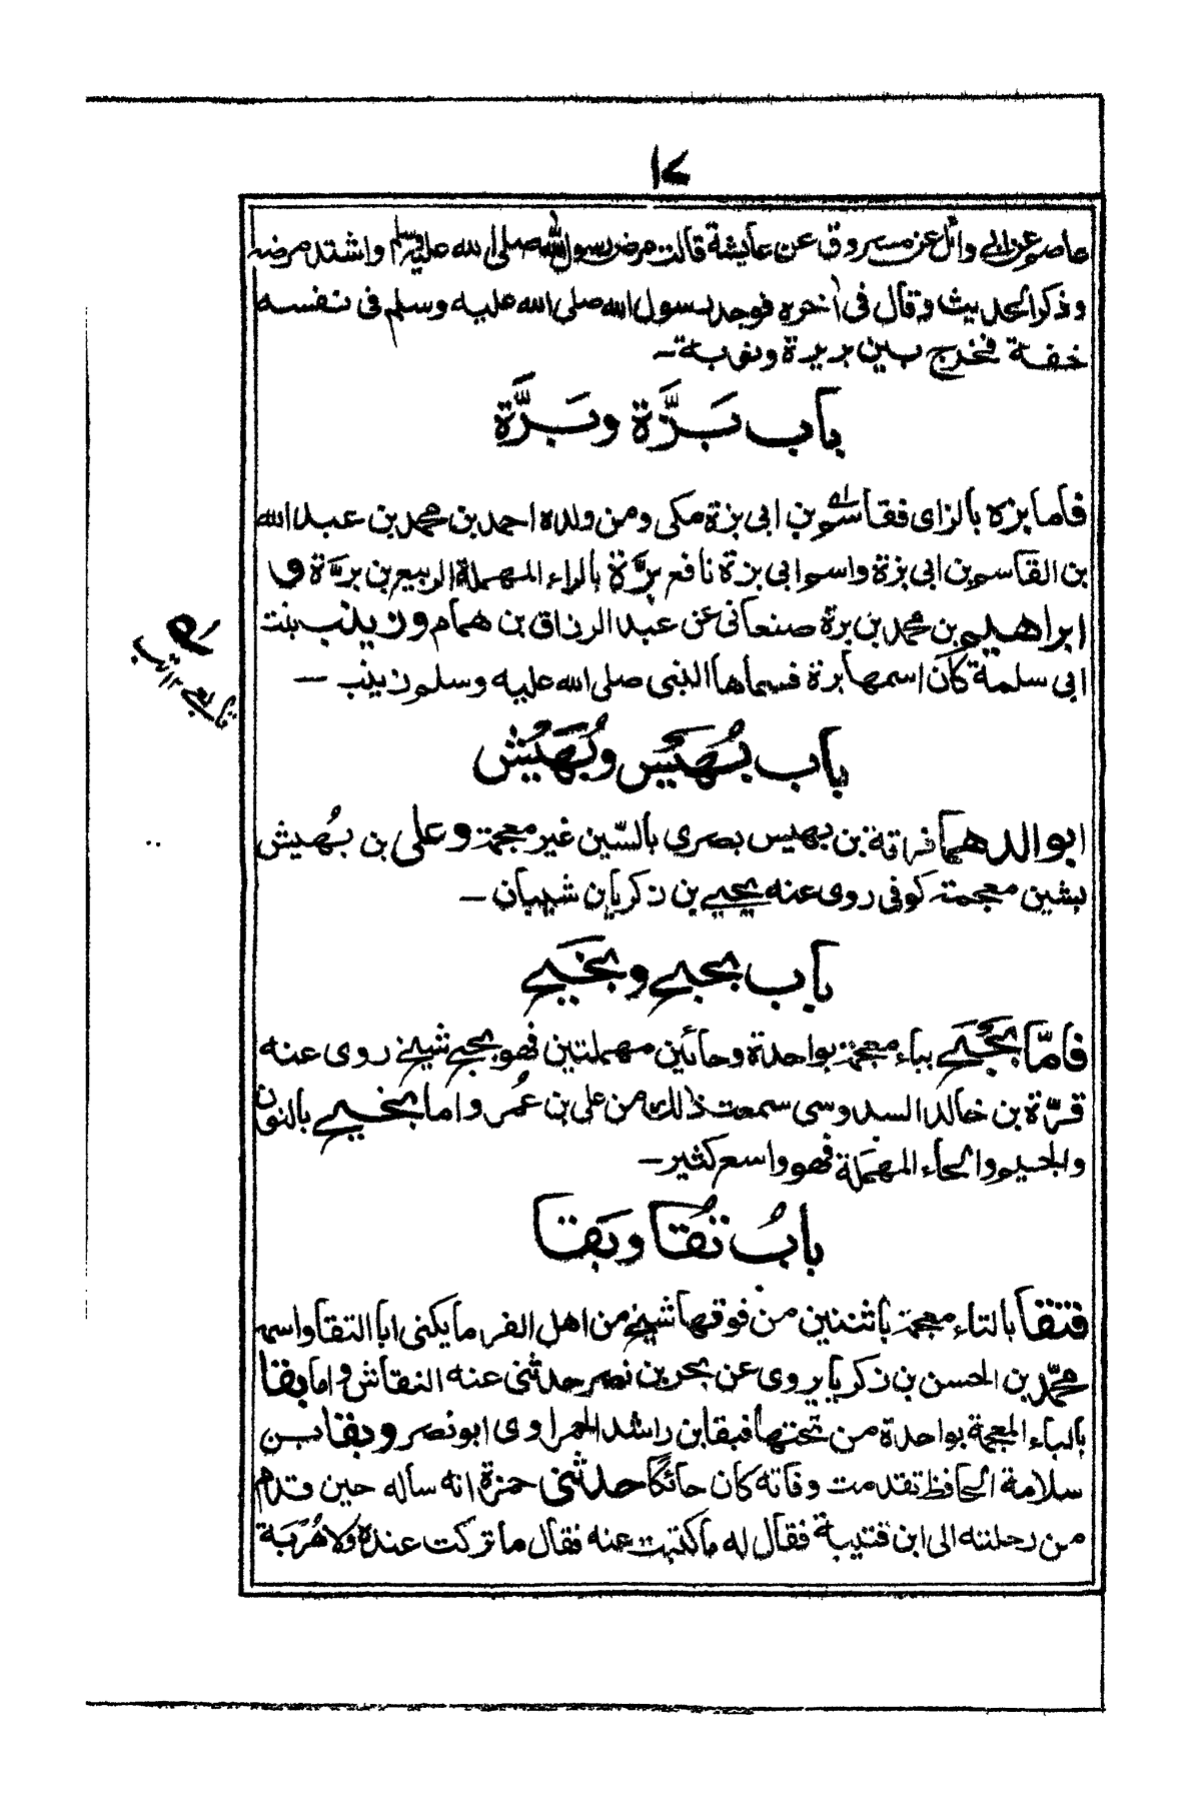 ١٧
عاصم عن ابى وائل عن مسروق عن عايشة قالت مرض رسول الله صلى الله عليه وسلم واشتد مرضه
وذكر الحديث وقال فى اخره فوجد رسول الله صلى الله عليه وسلم فى نفسه
خفة فخرج بين بريرة ونوبة ــ
باب بَزَّة وبَرَّة
فاما بزة بالزاى فقاسم بن ابى بزة مكى ومن ولده احمد بن محمد بن عبد الله
بن القاسم بن ابى بزة واسم ابى بزة نافع برَّة بالراء المهملة الربيع بن برّة و
ابراهيم بن محمد بن برة صنعانى عن عبد الرزاق بن همام وزينب بنت
ابى سلمة كان اسمها برة فسماها النبى صلى الله عليه وسلم زينب ــ
باب بُهَيَس وبُهَيُش
ابو الدهما قرفة بن بهيس بصرى بالسّين غير معجمة وعلى بن بُهيش
بشين معجمة كوفى روى عنه يحيى بن زكريا بن شيبان ــ
باب بحبح وبخيح
فامّا بَحْبَح بباء معجمة بواحدة وحائين مهملتين فهو بحبح شيخ روى عنه
قرّة بن خالد السدوسى سمعت ذلك من على بن عُمر واما نجيح بالنون
والجيم والحاء المهملة فهو واسع كثير ــ
بابُ تُقا وبَقا
فتقا بالتاء معجمة باثنتين من فوقها شيخ من اهل الفرما يكنى ابا التقا واسمه
محمّد بن الحسن بن زكريا يروى عن بحر بن نصر حدثنى عنه النقاش واما بقا
بالباء المعجمة بواحدة من تحتها فبقا بن راشد الحمراوى ابو نصر وبقا بن
سلامة الحافظ تقدمت وفاته كان حائكا حدثنى حمزة انه ساله حين قدم
من رحلته الى ابن قتيبة فقال له ما كتبت عنه فقال ما تركت عنده ولا هُرَبَة